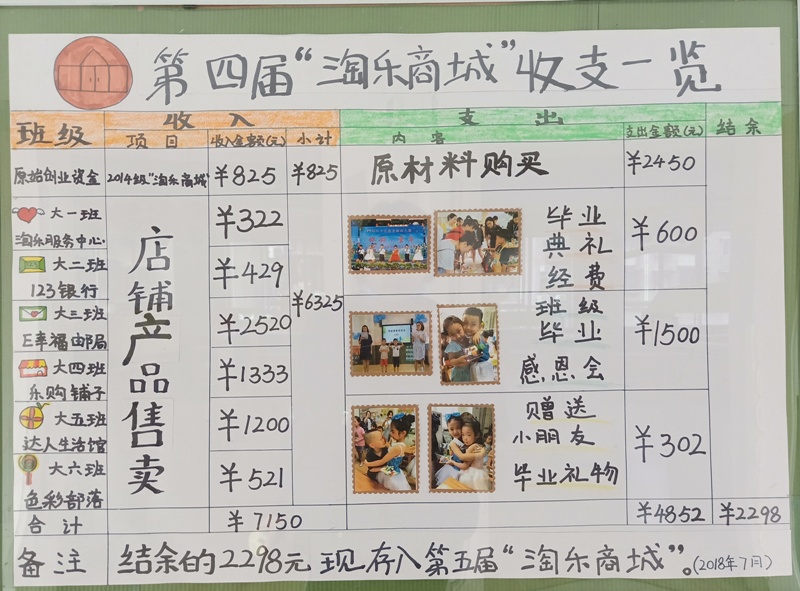 第四届“淘乐商城”收支一览
班级 收入 支出 结余
项目 收入金额(元) 小计 内容 支出金额(元)
原始创业资金 2014级“淘乐商城” ¥825 ¥825 原材料购买 ¥2450
大一班 ¥322
淘乐服务中心
大二班 ¥429
123银行
大三班 ¥2520
E幸福邮局
大四班 ¥1333
乐购铺子
大五班 ¥1200
达人生活馆
大六班 ¥521
色彩部落
店铺产品售卖
¥6325
毕业
典礼
经费
¥600
班级
毕业
感恩会
¥1500
赠送
小朋友
毕业礼物
¥302
合计 ¥7150 ¥4852 ¥2298
备注 结余的2298元现存入第五届“淘乐商城”。(2018年7月)